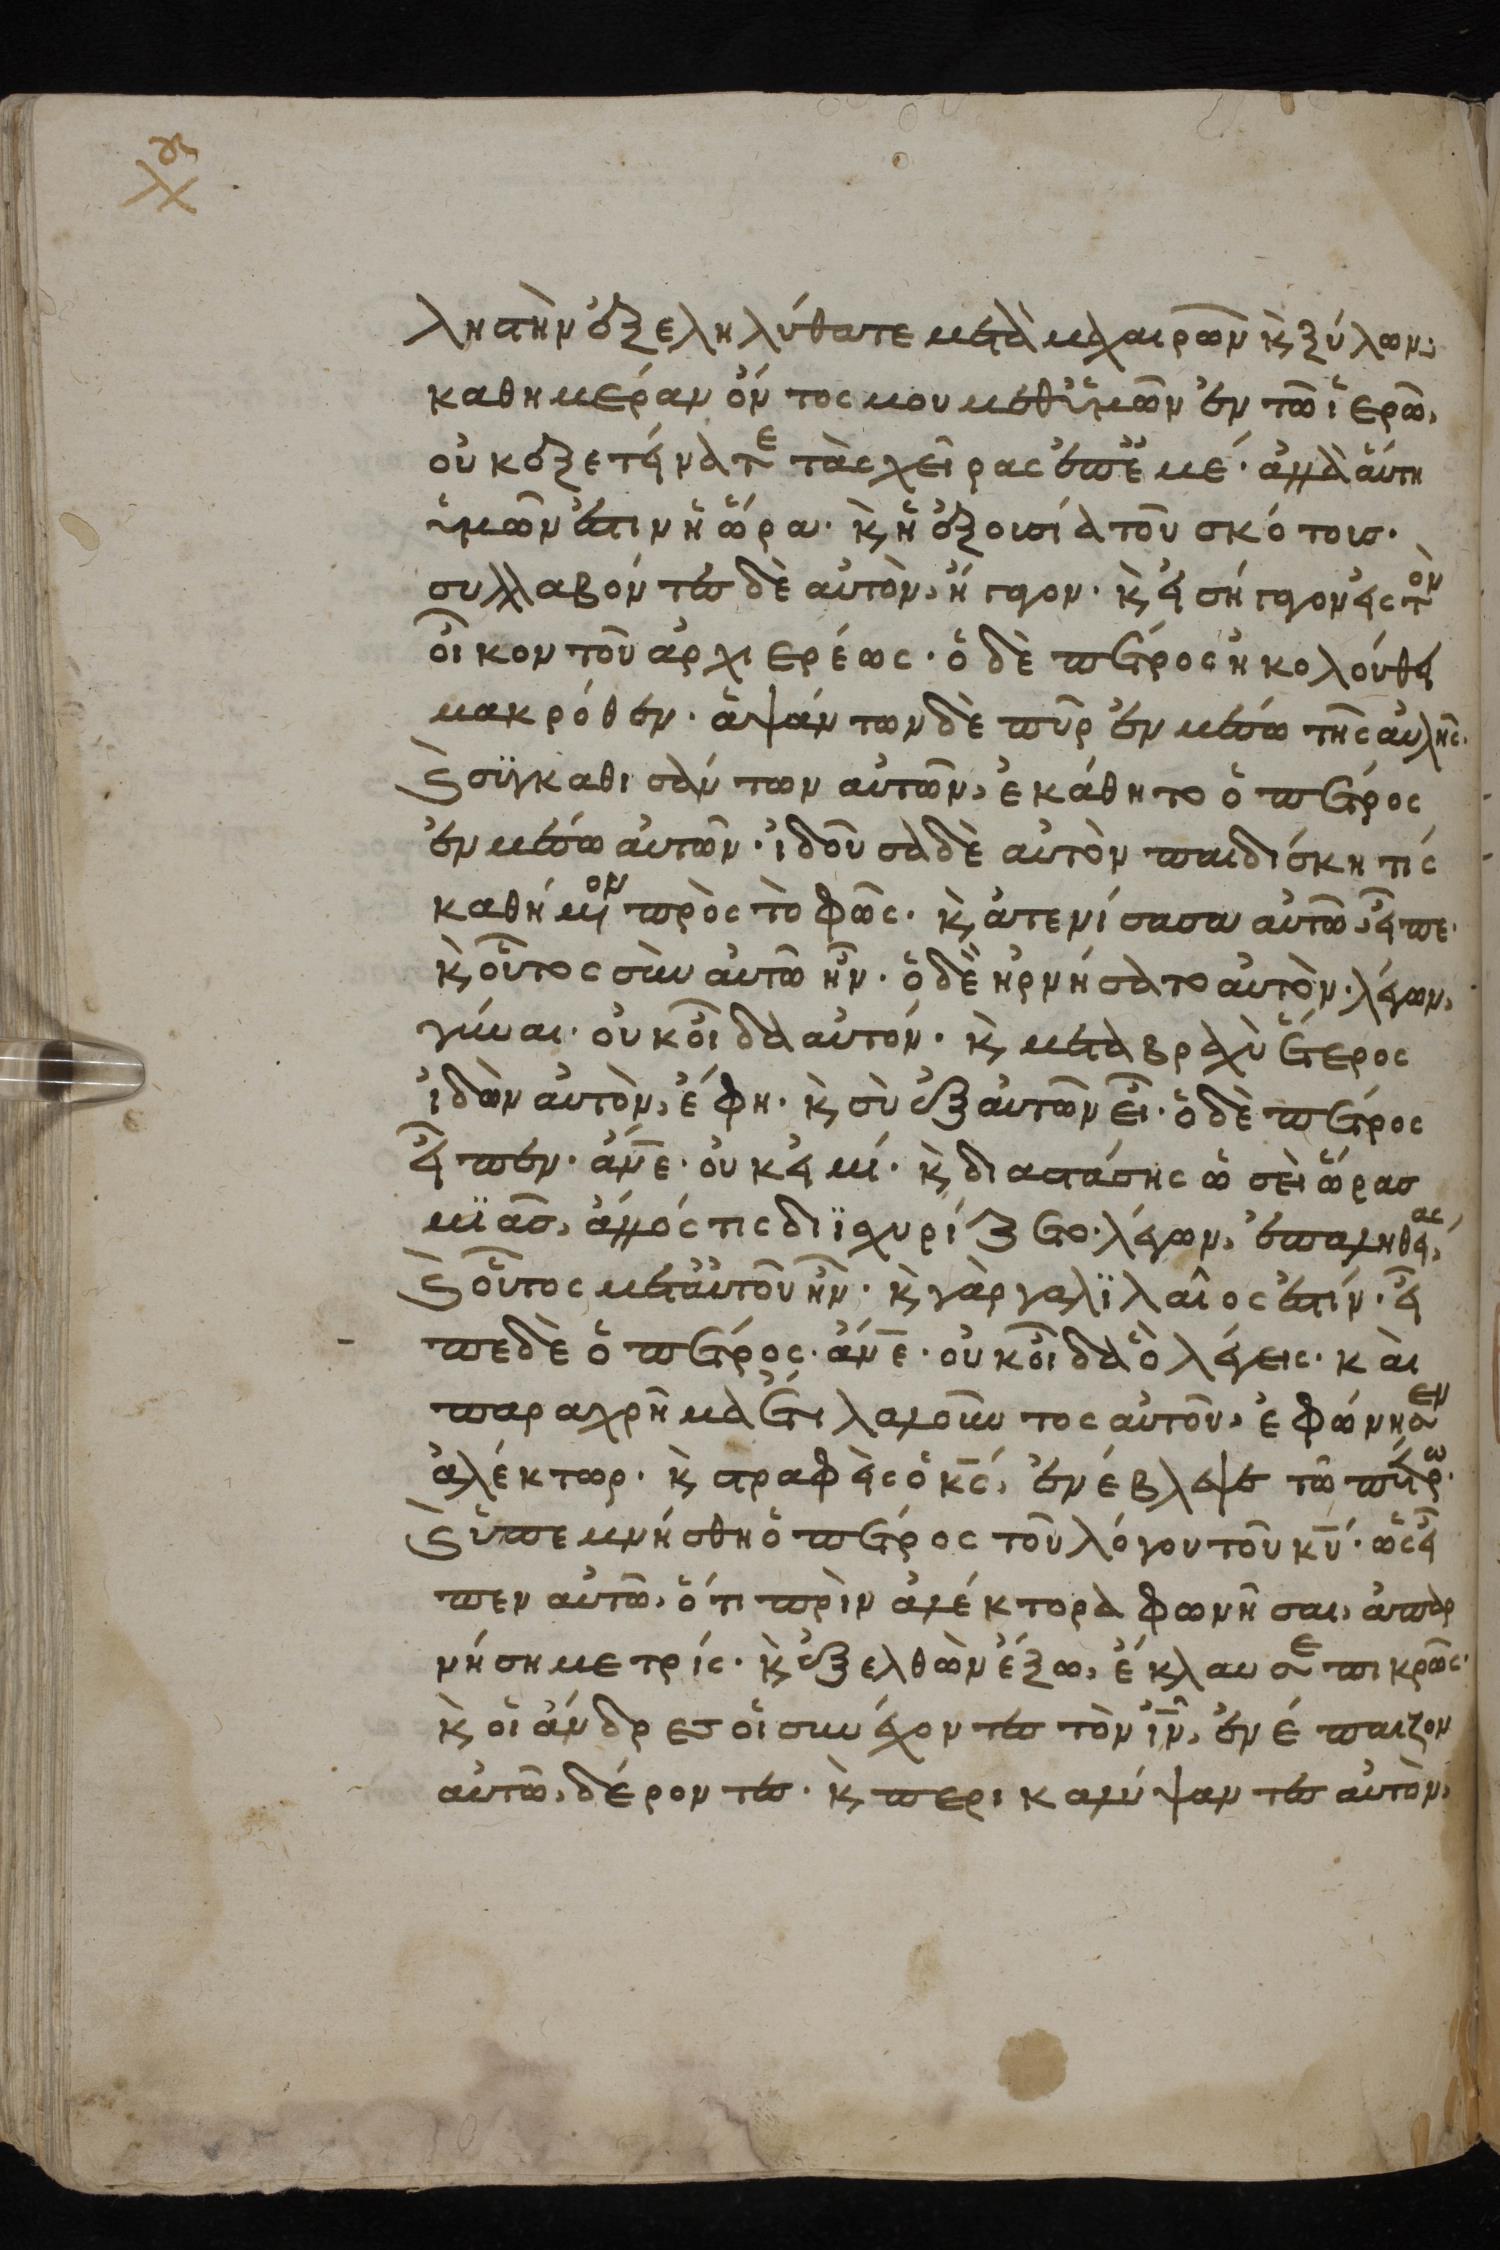 ληστὴν ἐξεληλύθατε μετὰ μαχαιρῶν κ ξύλων,
καθημέραν ὄντος μου μεθ ὑμῶν ἐν τῶ ἱερῶ,
οὐκ ἐξετείνατε τὰς χεῖρας ἐπ ἐμέ· ἀλλὰ αὕτη
ὑμῶν ἐστιν ἡ ὥρα· κ ἡ ἐξουσία τοῦ σκότους·
συλλαβόντες δὲ αὐτὸν, ἤγαγον· κ εἰσήγαγον εἰς τὸν
οἶκον τοῦ ἀρχιερέως· ὁ δὲ πέτρος ἠκολούθει
μακρόθεν· ἁψάντων δὲ πῦρ ἐν μέσω τῆς αὐλῆς·
κ συγκαθισάντων αὐτῶν, ἐκάθητο ὁ πέτρος
ἐν μέσω αὐτῶν· ἰδοῦσα δὲ αὐτὸν παιδίσκη τίς
καθήμενον πρὸς τὸ φῶς· κ ἀτενίσασα αὐτῶ, εἶπε·
κ οὗτος σὺν αὐτῶ ἦν· ὁ δὲ ἠρνήσατο αὐτὸν· λέγων,
γύναι· οὐκ οἶδα αὐτόν· κ μετὰ βραχὺ ἕτερος
ἰδὼν αὐτὸν, ἔφη· κ σὺ ἐξ αὐτῶν εἶ· ὁ δὲ πέτρος
εἶπεν· ἄνε· οὐκ εἰμί· κ διαστάσης ὡσεὶ ὥρας
μϊᾶς, ἄλλός τις διϊσχυρίζετο· λέγων, ἐπ αληθείας,
κ οὗτος μετ αὐτοῦ ἦν· κ γὰρ γαλϊλαῖος ἐστίν· εἶ
πε δὲ ὁ πέτρος· ἄνε· οὐκ οἶδα ὃ λέγεις· καὶ
παραχρῆμα ἔτι λαλοῦντος αὐτοῦ, ἐφώνησεν
ἀλέκτωρ· κ στραφεὶς ὁ κς, ἐνέβλεψε τῶ πέτρω·
κ ὑπεμνήσθη ὁ πέτρος τοῦ λόγου τοῦ κυ· ὡς εἶ
πεν αὐτῶ, ὅτι πρὶν ἀλέκτορα φωνῆσαι, ἀπαρ
νήση με τρίς· κ ἐξελθὼν ἔξω, ἔκλαυσε πικρῶς·
κ οἱ ἄνδρες οἱ συνέχοντες τὸν ιν, ἐνέπαιζον
αὐτῶ, δέροντες· κ περικαλύψαντες αὐτὸν,